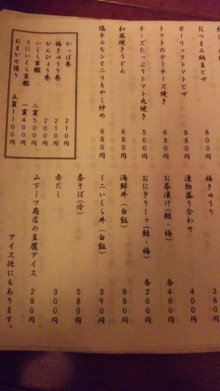 おつまみ納豆ピザ 800円
ガーリックトマトピザ 880円
トマトのデミチーズ焼き 630円
チーズたっぷりトマト丸焼き 500円
和風焼きうどん 680円
塩ホルモンとニラもやし炒め 680円
かっぱ巻 210円
梅きゅう巻 200円
かんぴょう巻 200円
いくら軍艦 二貫500円
うにいくら軍艦 一貫400円
おまかせ握り 五貫1100円
梅きゅうり 380円
漬物盛り合わせ 400円
お茶漬け(鮭、梅) 各480円
おにぎり一ヶ(鮭・梅) 各200円
海鮮丼(白飯) 880円
ミニいくら丼(白飯) 390円
茶そば(冷) 580円
赤だし 300円
山下ミツ商店の豆腐アイス 280円
アイス他にもあります。